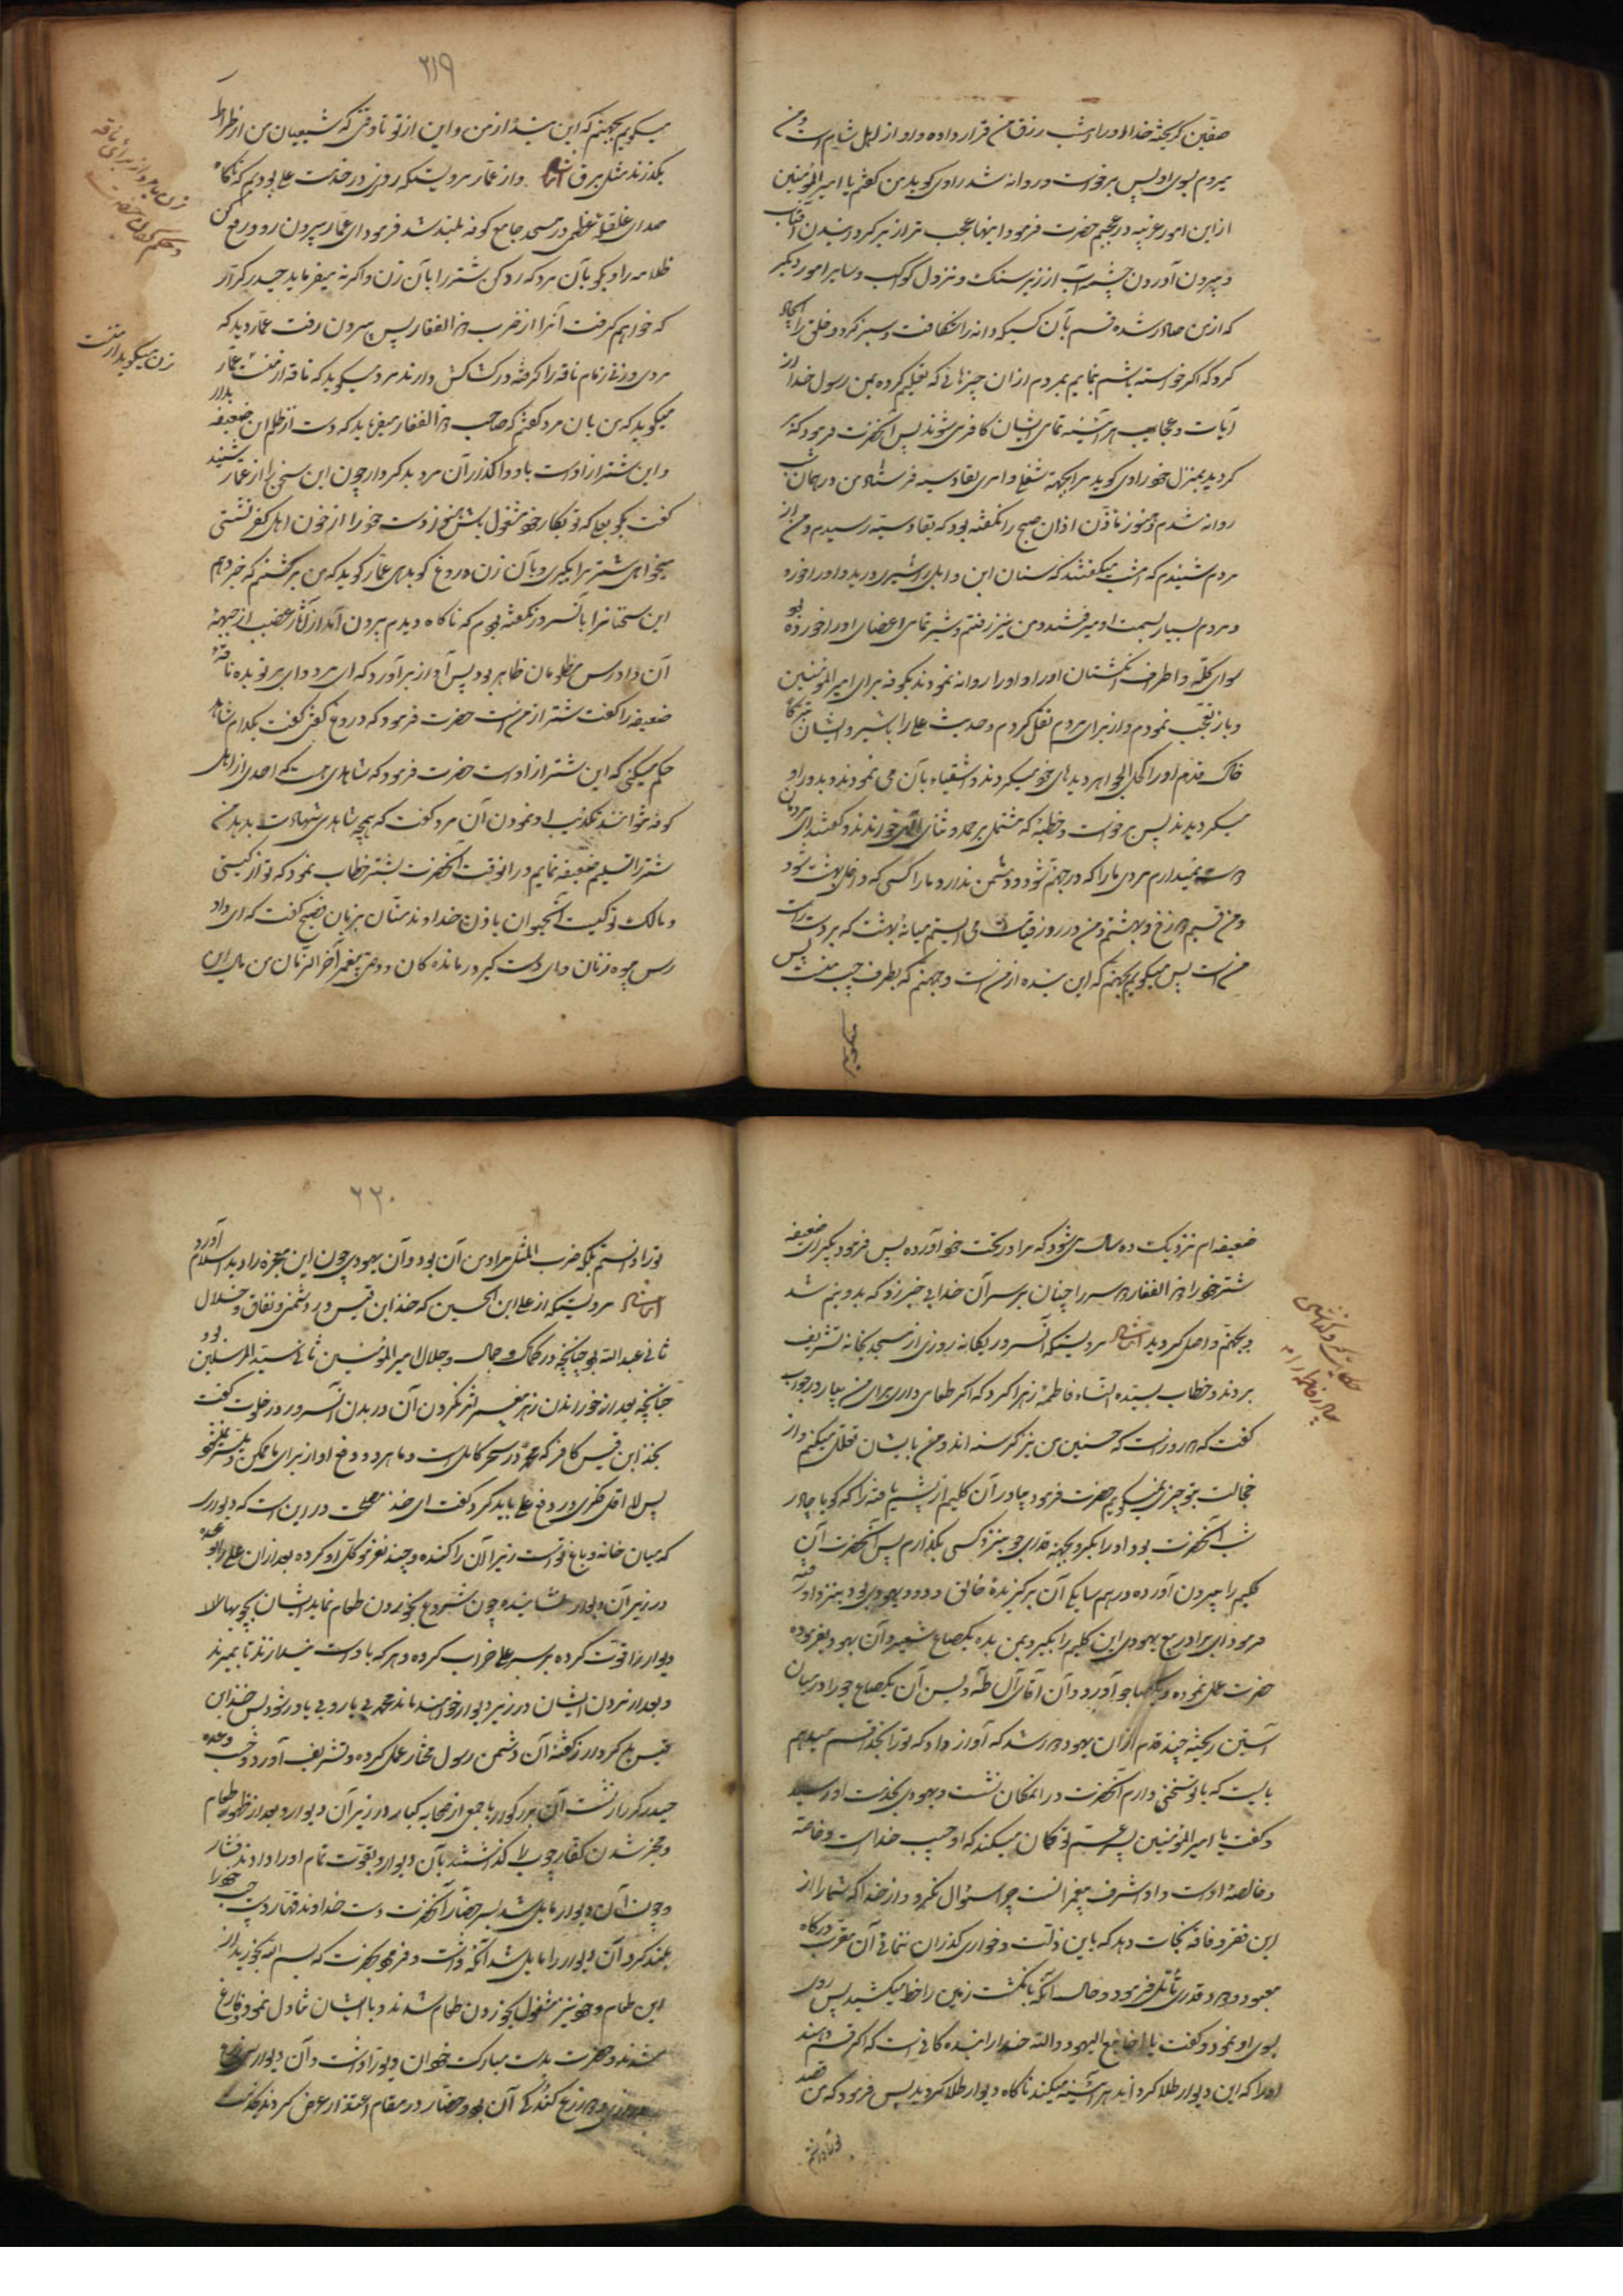 صفین گریخته خدا او را امشب رزق من قرار داده و او از اهل شام است و من
میروم بسوی او پس برخواست و روانه شد راوی گوید من گفتم یا امیر المؤمنین
از این امور غریبه در عجبم حضرت فرمود اینها عجب تر از برگردانیدن آفتاب
و بیرون آوردن چشمه آب از زیر سنگ و نزول کوکب و سایر امور دیگر
که از من صادر شده قسم بآن کسیکه دانه را شکافت و سبز کرد و خلق را ایجاد
کرد که اگر خواسته باشم بنمایم بمردم از ان چیزهائی که تعلیم کرده بمن رسول خدا از
آیات و عجایب هر آینه تمامی ایشان کافر می شوند پس آنحضرت فرمود که بر
گردید بمنزل خود راوی گوید مرا بجهة شغلی و امری بقادسیه فرستاد من در همان شب
روانه شدم و هنوز مؤذن اذان صبح را نگفته بود که بقادسیه رسیدم و من از
مردم شنیدم که امشب میگفتند که سنان ابن وابل را شیری درید و او را خورد
و مردم بسیار بسمت او میرفتند و من نیز رفتم و شیر تمامی اعضای او را خورده بود
سوای کله و اطراف انگشتان او را و او را روانه نمودند بکوفه برای امیر المؤمنین
و باز تعجب نمودم و از برای مردم نقل کردم و حدیث علی را با شیر و ایشان تبرکا
خاک قدم او را کحل الجواهر دیدهای خود میکردند و استشفاء بآن می نمودند و بدور او
میگردیدند پس برخواست و خطبهٔ که مشتمل بر حمد و ثنای الهی خواندند و گفتند ای مردمان
دوست نمیدارم مردی ما را که در جهنم شود و دشمن ندارد ما را کسی که داخل بهشت شود
و من قسیم دوزخ و بهشتم و من در روز قیامت می ایستم میانهٔ بهشت که بر دست راست
من است پس میگویم بجهنم که این بنده از من است و جهنم که بطرف چپ منست پس
میگویم
۲۱۹
میگویم بجهنم که این بنده از من و این از تو تا وقتی که شیعیان من از صراط
بگذرند مثل برق ایضا و از عمار مرویست که روزی در خدمت علی بودیم که ناگاه
صدای غلغلهٔ عظمی در مسجد جامع کوفه بلند شد فرمود ای عمار بیرون رو و رفع کن
ظلامه را و بگو بآن مرد که رد کن شتر را بآن زن و اگر نه میفرماید حیدر کرار
که خواهم گرفت آنرا از ضرب ذو الفقار پس بیرون رفت عمار دید که
مردی و زنی زمام ناقه را گرفته در کشاکش دارند مرد میگوید که ناقه از منست عمار
میگوید که من بان مرد گفتم که صاحب ذو الفقار میفرماید که دست از ظلم این ضعیفه بدار
و این شتر از اوست باو واگذار آن مرد بدکردار چون این سخن را از عمار شنید
گفت بگو بعلی که تو بکار خود مشغول باش هنوز دست خود را از خون اهل کفر نشستی
میخواهی شتر مرا بگیری و بآن زن دروغ گو بدهی عمار گوید که من برگشتم که خبر دهم
این سخنانرا بآنسرور نگفته بودم که ناگاه دیدم بیرون آمد از آثار غضب از جبههٔ
آن دادرس مظلومان ظاهر بود پس آواز برآورد که ای مرد وای بر تو بده ناقهٔ
ضعیفه را گفت شتر از من است حضرت فرمود که دروغ گفتی گفت بکدام شاهد
حکم میکنی که این شتر از اوست حضرت فرمود که شاهدی هست که احدی از اهل
کوفه نتوانند تکذیب او نمودن آن مرد گفت که هرچه شاهدی شهادت بدهد من
شتر را تسلیم ضعیفه نمایم در انوقت آنحضرت بشتر خطاب نمود که تو از کیستی
و مالک تو کیست آنحیوان باذن خداوند منان بزبان فصیح گفت که ای داد
رس بیوه زنان و ای دست گیر درماندگان و وصی پیغمبر آخر الزمان من مال این
زن میگوید از منست
ضعیفه ام نزدیک ده سال می شود که مرا در تحت خود آورده پس فرمود بگیر ای ضعیفه
شتر خود را و ذو الفقار دو سر را چنان بر سر آن خدا بی خبر زد که بدو نیم شد
و بجهنم واصل گردید ایضا مرویست که آنسرور یگانه روزی از مسجد بخانه تشریف
بردند و خطاب بسیدة النساء فاطمهٔ زهرا کرد که اگر طعامی داری برای من بیار در جواب
گفت که دو روز است که حسنین من نیز گرسنه اند و من بایشان تعلل میکنم و از
خجالت بتو چیزی نمیگویم حضرت فرمود چادر آن کلیم از پشم بافته را که گویا چادر
شب آنحضرت بود او را بگرو بجهة قدری جو بنزد کسی بگذارم پس آنحضرت آن
کلیم را بیرون آورده در همسایگی آن برگزیدهٔ خالق ودود یهودی بود بنزد او رفته
فرمود ای برادر تبع یهودی این کلیم را بگیر و بمن بده یکصاع شعیر و آن یهود بفرموده
حضرت عمل نموده و یکصاع جو آورد و آن آقای آل طه و یس آن یکصاع جو را در میان
آستین ریخته چند قدم از ان یهود دور شد که آواز داد که تو را بخدا قسم میدهم
بایست که با تو سخنی دارم آنحضرت در انمکان نشست و یهودی بخدمت او رسید
و گفت یا امیر المؤمنین پسر عم تو گمان میکند که او حبیب خداست و خاصه
و خالصهٔ اوست و او اشرف پیغمبرانست چرا سئوال نکرد و از خدا که شما را از
این فقر و فاقه نجات دهد که باین ذلت و خواری گذران ننمائی آن مقرب درگاه
معبود ودود قدری تأمل فرمود در حالت آنکه بانگشت زمین را خط میکشید پس روی
بسوی او نمود و گفت یا اخا تبع الیهود والله خدا را بنده گانی است که اگر قسم دهند
او را که این دیوار طلا گرداند هر آینه میکند ناگاه دیوار طلا گردید پس فرمود که من قصد
تو را ندانستم
۲۲۰
تو را ندانستم بلکه ضرب المثل مراد من آن بود و آن یهودی چون این معجزه را دید اسلام آورد
ایضا مرویست که از علی ابن الحسین که جد ابن قیس در دشمنی و نفاق و ضلال
ثانی عبد الله بود چنانچه در کمال و جمال و جلال امیر المؤمنین ثانی سید المرسلین بود
چنانچه بعد از خوراندن زهر و اثر نکردن آن در بدن آنسرور در خلوت گفت
پس لا اقل فکری در دفع علی باید کرد گفت ای جد مصلحت در این است که دیواری
که میان خانه و باغ تو است زیر آن را کنده و چند نفر موکل او کرده بعد از ان علی را وعده
در زیر آن دیوار نشانیده چون شروع بخوردن طعام نماید ایشان بچوبها بالا
دیوار را قوت کرده بر سر علی خراب کرده و هر که با اوست نیندازند تا بمیرند
و بعد از مردن ایشان در زیر دیوار خواهند ماند محمد بی یار و بی یاور شود پس جد ابن
قیس بدکردار بگفتهٔ آن دشمن رسول مختار عمل کرده و تشریف آورد وعده
حیدر کرار نشست آن بزرگوار با جمعی از صحابه کبار در زیر آن دیوار و بعد از ظهور طعام
و مخبر شدن کفار چوب را گذاشتند بآن دیوار و بقوت تمام او را دادند فشار
و چون آن دیوار مایل شد بسر حضار آنحضرت دست خداوند قهار دست چپ خود را
بلند کرد آن دیوار را مایل شد نگه داشت و فرمود بحضرت که بسم الله بخورید از
این طعام و خود نیز مشغول بخوردن طعام شدند و با ایشان تناول نمود و فارغ
شدند و حضرت بدست مبارکت خود آن دیوار داشت و آن دیوار
ذرع گندگی آن بود حضار در مقام اعتذار عرض کردند